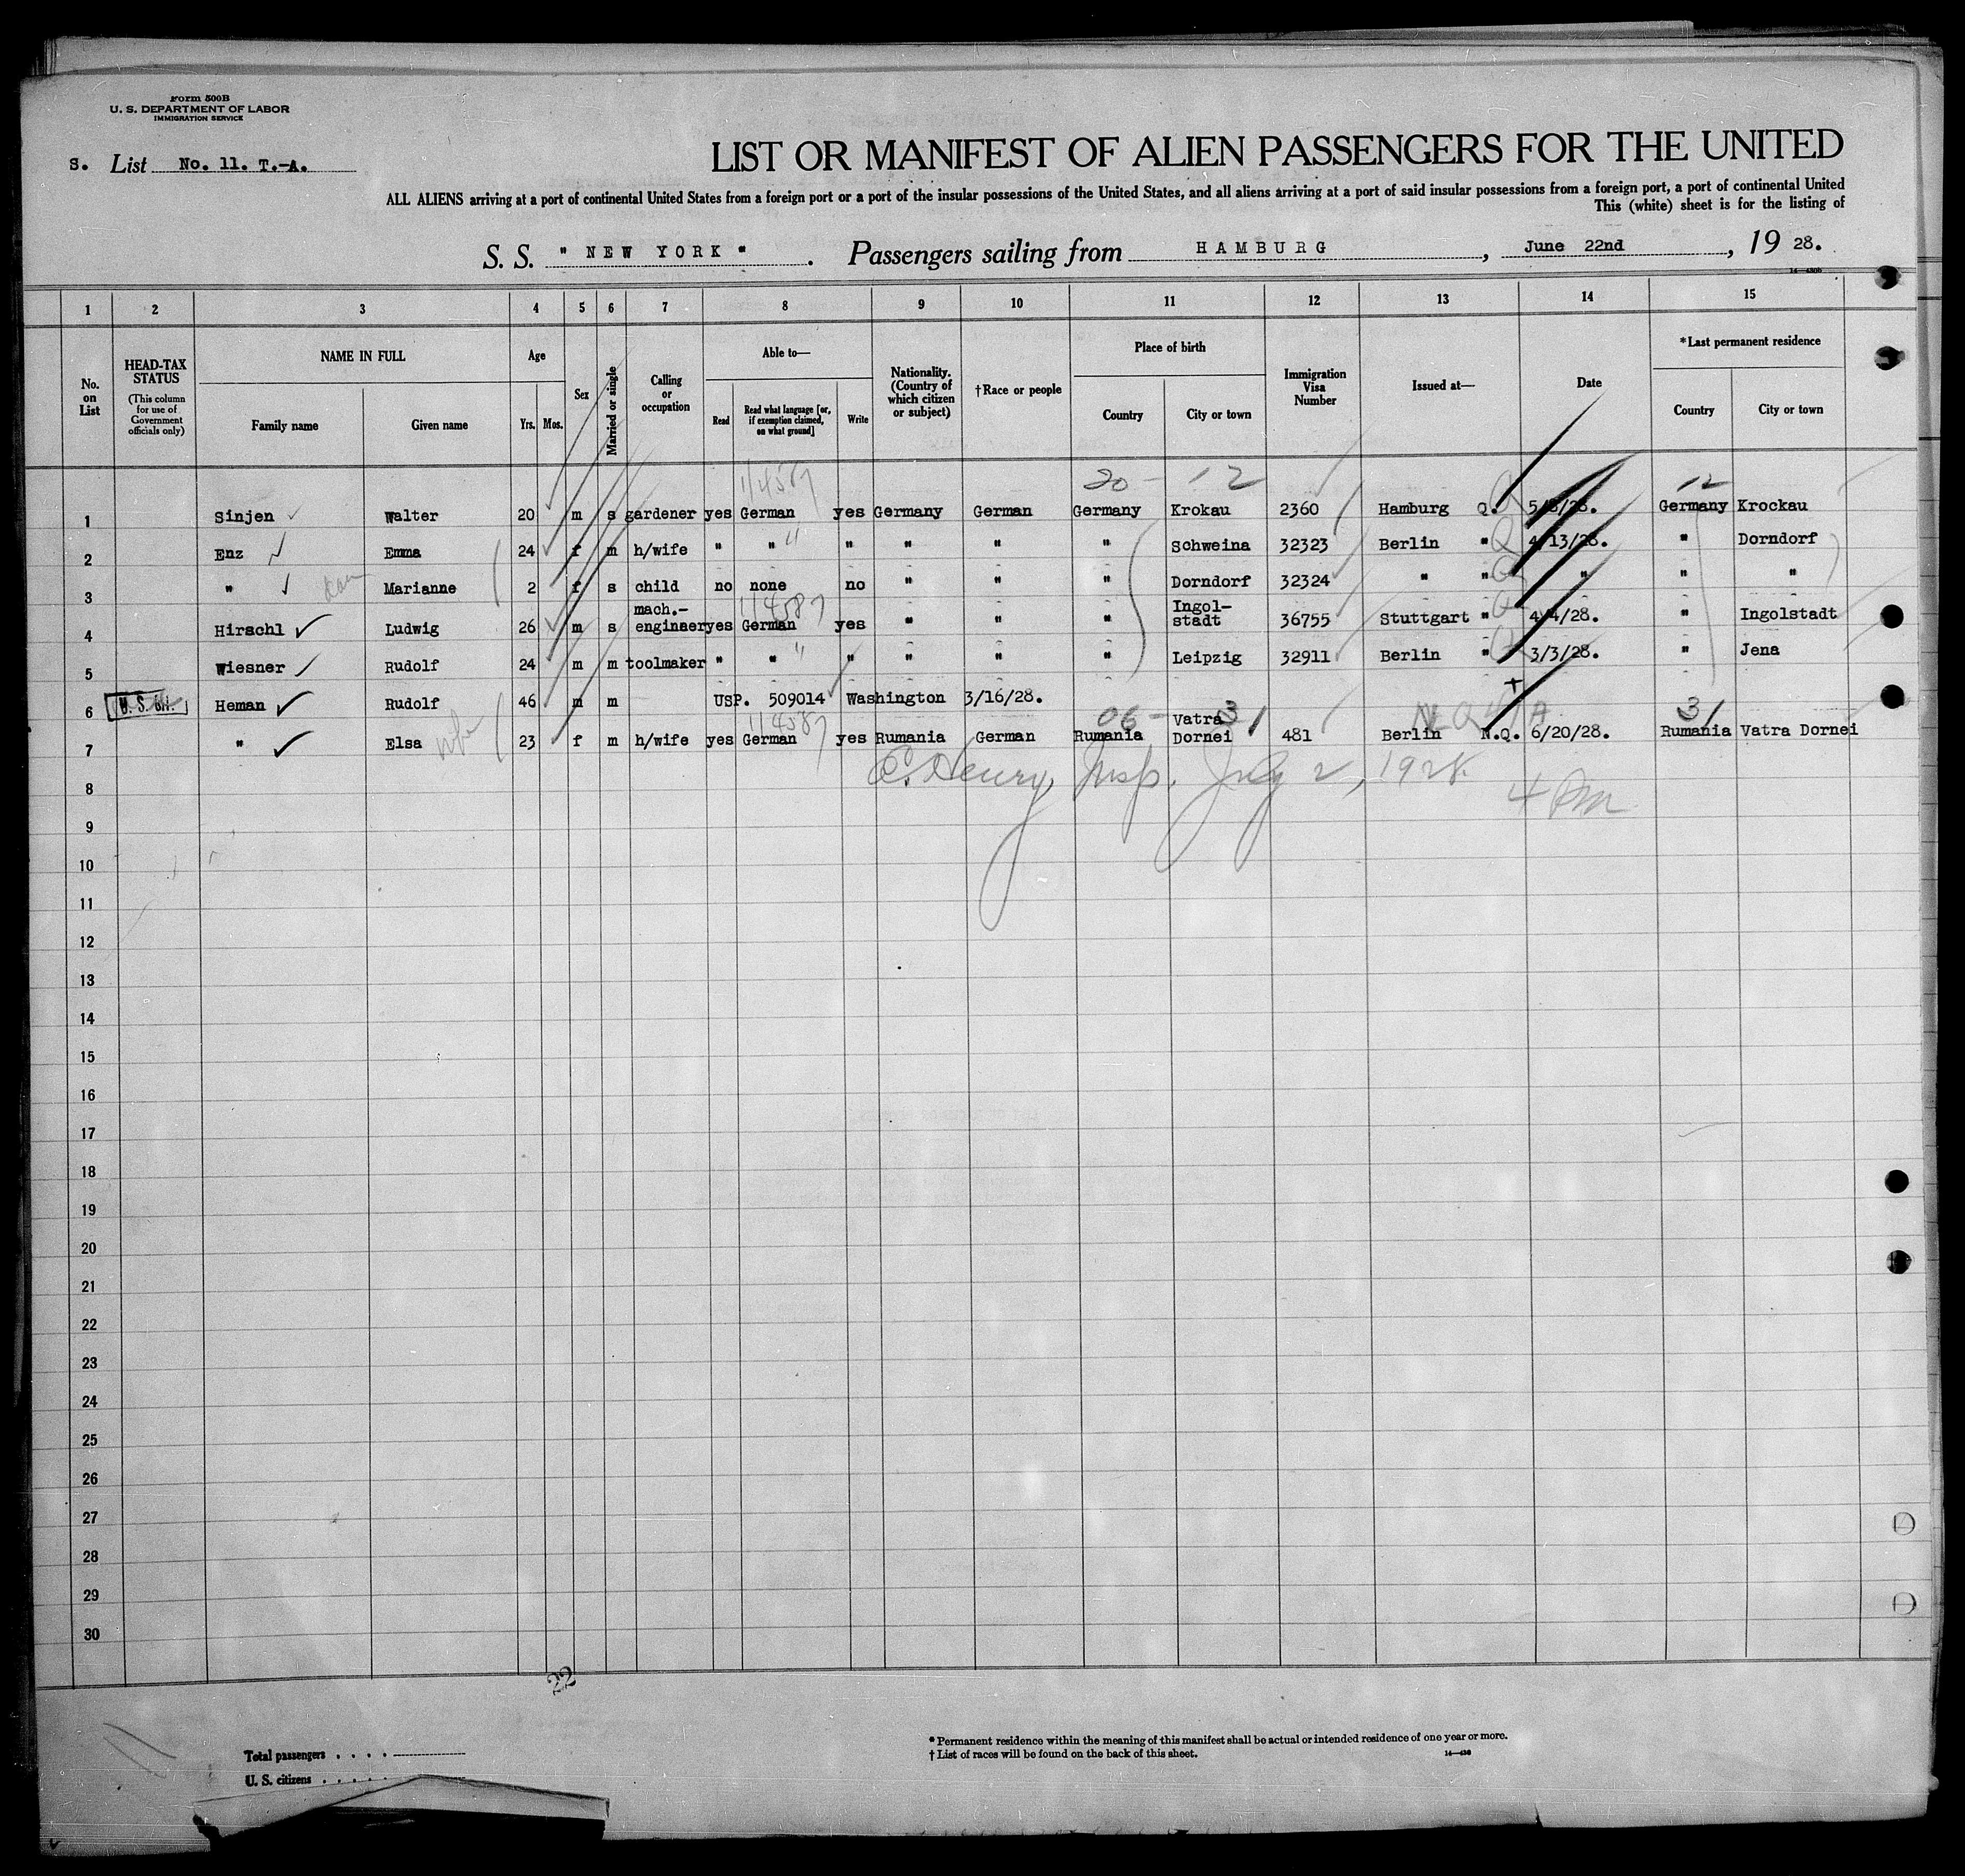 Form 500B
U. S. DEPARTMENT OF LABOR
IMMIGRATION SERVICE
S. List No. 11. T.-A.
LIST OR MANIFEST OF ALIEN PASSENGERS FOR THE UNITED
ALL ALIENS arriving at a port of continental United States from a foreign port or a port of the insular possessions of the United States, and all aliens arriving at a port of said insular possessions from a foreign port, a port of continental United
This (white) sheet is for the listing of
S. S. " NEW YORK " . Passengers sailing from HAMBURG , June 22nd , 19 28.
14—430b
1 2 3 4 5 6 7 8 9 10 11 12 13 14 15
No. on List
HEAD-TAX STATUS (This column for use of Government officials only)
NAME IN FULL Family name Given name
Age Yrs. Mos.
Sex
Married or single
Calling or occupation
Able to— Read Read what language [or, if exemption claimed, on what ground] Write
Nationality. (Country of which citizen or subject)
†Race or people
Place of birth Country City or town
Immigration Visa Number
Issued at—
Date
*Last permanent residence Country City or town
1/4587 20 - 12 12
1 Sinjen Walter 20 m s gardener yes German yes Germany German Germany Krokau 2360 Hamburg Q. 5/8/28. Germany Krockau
2 Enz Emma 24 f m h/wife " " " " " " Schweina 32323 Berlin "Q 4/13/28. " Dorndorf
3 " Marianne 2 f s child no none no " " " Dorndorf 32324 " " " " "
1/4587
4 Hirschl Ludwig 26 m s mach.-engineer yes German yes " " " Ingol-stadt 36755 Stuttgart " 4/4/28. " Ingolstadt
5 Wiesner Rudolf 24 m m toolmaker " " " " " " Leipzig 32911 Berlin " 3/3/28. " Jena
6 Heman Rudolf 46 m m USP. 509014 Washington 3/16/28.
wife 1/4587 06 - 31 31
7 " Elsa 23 f m h/wife yes German yes Rumania German Rumania Vatra Dornei 481 Berlin N.Q. 6/20/28. Rumania Vatra Dornei
C. Henry, Insp. July 2, 1928.
4 Pm
8
9
10
11
12
13
14
15
16
17
18
19
20
21
22
23
24
25
26
27
28
29
30
22
Total passengers . . . .
U. S. citizens . . . . .
* Permanent residence within the meaning of this manifest shall be actual or intended residence of one year or more.
† List of races will be found on the back of this sheet.
14—430